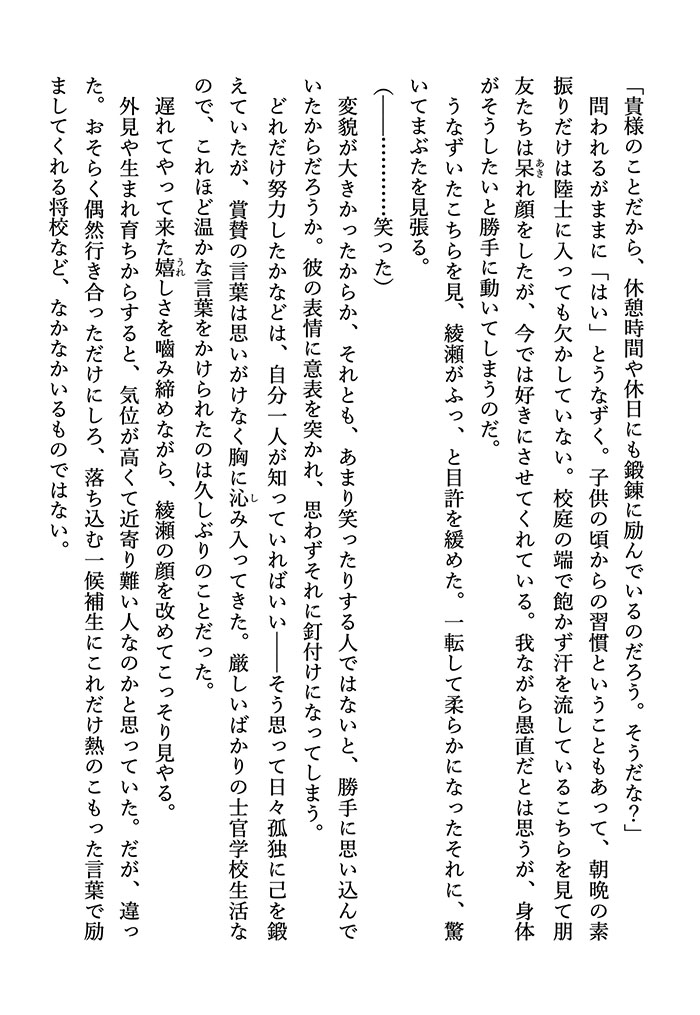 「貴様のことだから、休憩時間や休日にも鍛錬に励んでいるのだろう。そうだな？」
　問われるがままに「はい」とうなずく。子供の頃からの習慣ということもあって、朝晩の素
振りだけは陸士に入っても欠かしていない。校庭の端で飽かず汗を流しているこちらを見て朋
友たちは呆れ顔をしたが、今では好きにさせてくれている。我ながら愚直だとは思うが、身体
がそうしたいと勝手に動いてしまうのだ。
　うなずいたこちらを見、綾瀬がふっ、と目許を緩めた。一転して柔らかになったそれに、驚
いてまぶたを見張る。
（――…………笑った）
　変貌が大きかったからか、それとも、あまり笑ったりする人ではないと、勝手に思い込んで
いたからだろうか。彼の表情に意表を突かれ、思わずそれに釘付けになってしまう。
　どれだけ努力したかなどは、自分一人が知っていればいい――そう思って日々孤独に己を鍛
えていたが、賞賛の言葉は思いがけなく胸に沁み入ってきた。厳しいばかりの士官学校生活な
ので、これほど温かな言葉をかけられたのは久しぶりのことだった。
　遅れてやって来た嬉しさを嚙み締めながら、綾瀬の顔を改めてこっそり見やる。
　外見や生まれ育ちからすると、気位が高くて近寄り難い人なのかと思っていた。だが、違っ
た。おそらく偶然行き合っただけにしろ、落ち込む一候補生にこれだけ熱のこもった言葉で励
ましてくれる将校など、なかなかいるものではない。